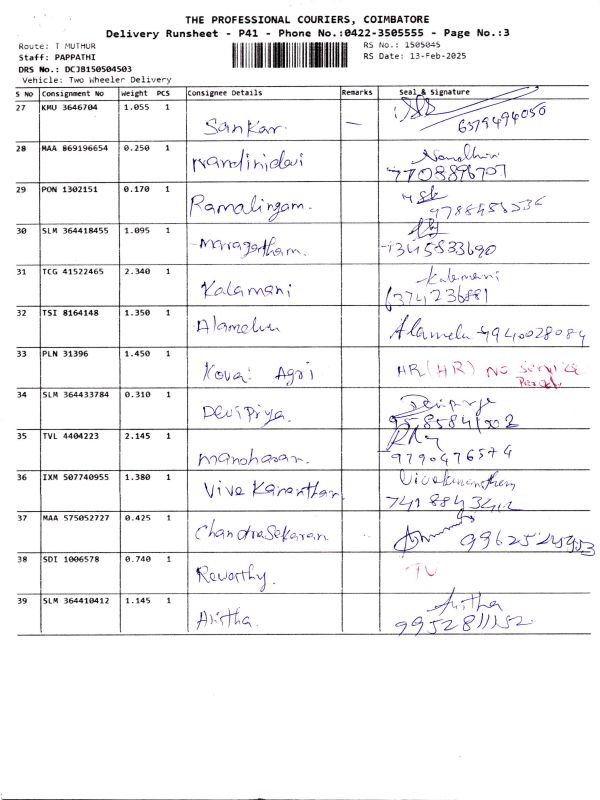 THE PROFESSIONAL COURIERS, COIMBATORE
Delivery Runsheet - P41 - Phone No.:0422-3505555 - Page No.:3
Route: T MUTHUR
RS No.: 1505045
Staff: PAPPATHI
RS Date: 13-Feb-2025
DRS No.: DCJ8150504503
Vehicle: Two Wheeler Delivery
S No Consignment No Weight PCS Consignee Details Remarks Seal & Signature
27 KMU 3646704 1.055 1
Sankar. — 6379494056
28 MAA 869196654 0.250 1
Nandinidevi 7708896707
29 PON 1302151 0.170 1
Ramalingam.
30 SLM 364418455 1.095 1
Maragatham. 7345833690
31 TCG 41522465 2.340 1 Kalamani
Kalamani 6374236881
32 TSI 8164148 1.350 1
Alamelu Alamelu 9940028084
33 PLN 31396 1.450 1
Kovai Agri HR (HR) No service
34 SLM 364433784 0.310 1 Devipriya
Devipriya.
35 TVL 4404223 2.145 1
Manoharan. 9790476574
36 IXM 507740955 1.380 1
Vivekananthan.
37 MAA 575052727 0.425 1
Chandrasekaran
38 SDI 1006578 0.740 1
Revorthy.
39 SLM 364410412 1.145 1 Aristha
Aristha. 9952811152